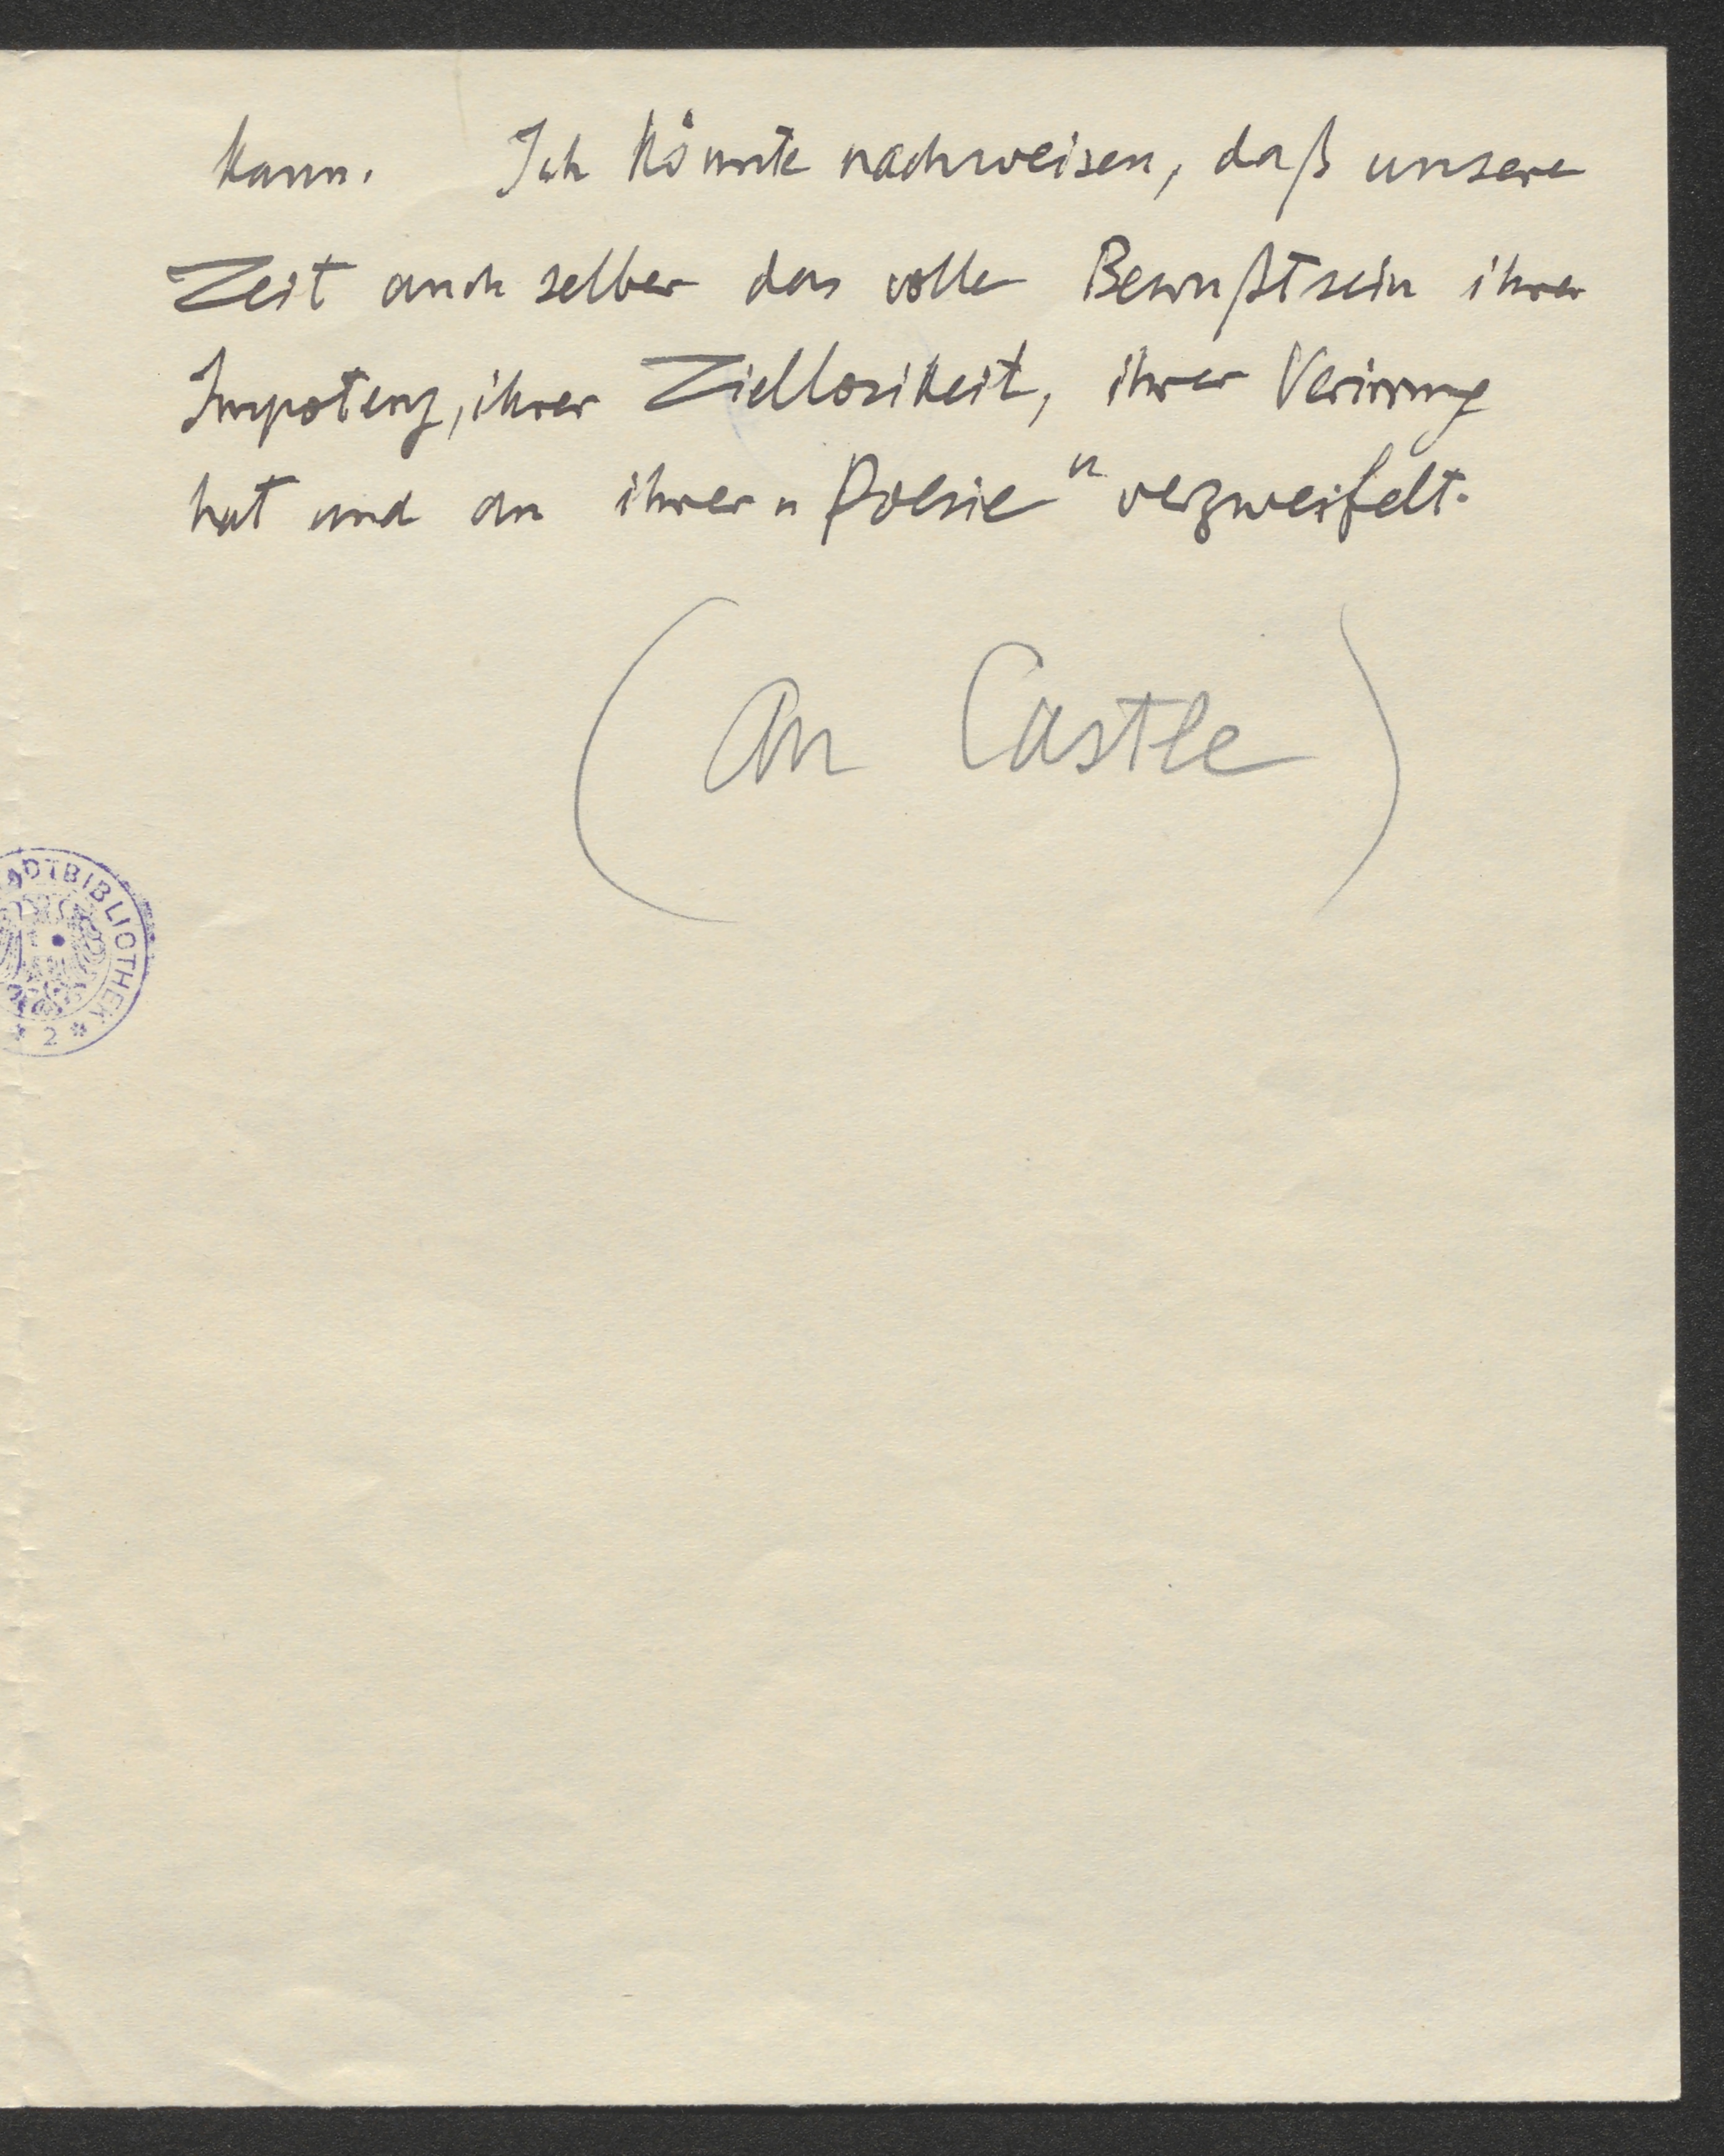 kann. Ich könnte nachweisen, daß unsere
Zeit auch selber das volle Bewußtsein ihrer
Impotenz, ihrer Ziellosikeit, ihrer Verirrung
hat und an ihrer „Poesie“ verzweifelt.
(An Castle)
ADTBIBLIOTHEK
* 2 *